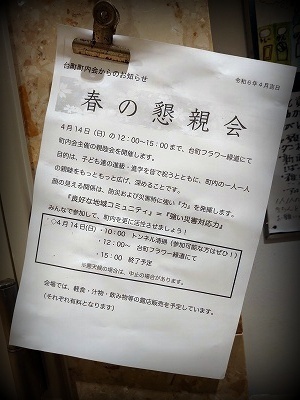 台町町内会からのお知らせ
令和6年4月吉日
春の懇親会
4月14日（日）の12：00~15：00まで、台町フラワー緑道にて
町内会主催の親睦会を開催します。
目的は、子ども達の進級・進学を祝うとともに、町内の一人一人
の親睦をもっともっと広げ、深めることです。
顔の見える関係は、防災および災害時に強い「力」を発揮します。
『良好な地域コミュニティ』＝『強い災害対応力』
みんなで参加して、町内を更に活性させましょう！
○4月14日（日）・10：00 トンネル清掃（参加可能な方はぜひ！）
・12：00~ 台町フラワー緑道にて
・15：00 終了予定
※悪天候の場合は、中止の場合があります。
会場では、軽食・汁物・飲み物等の露店販売を予定しています。
（それぞれ有料となります）